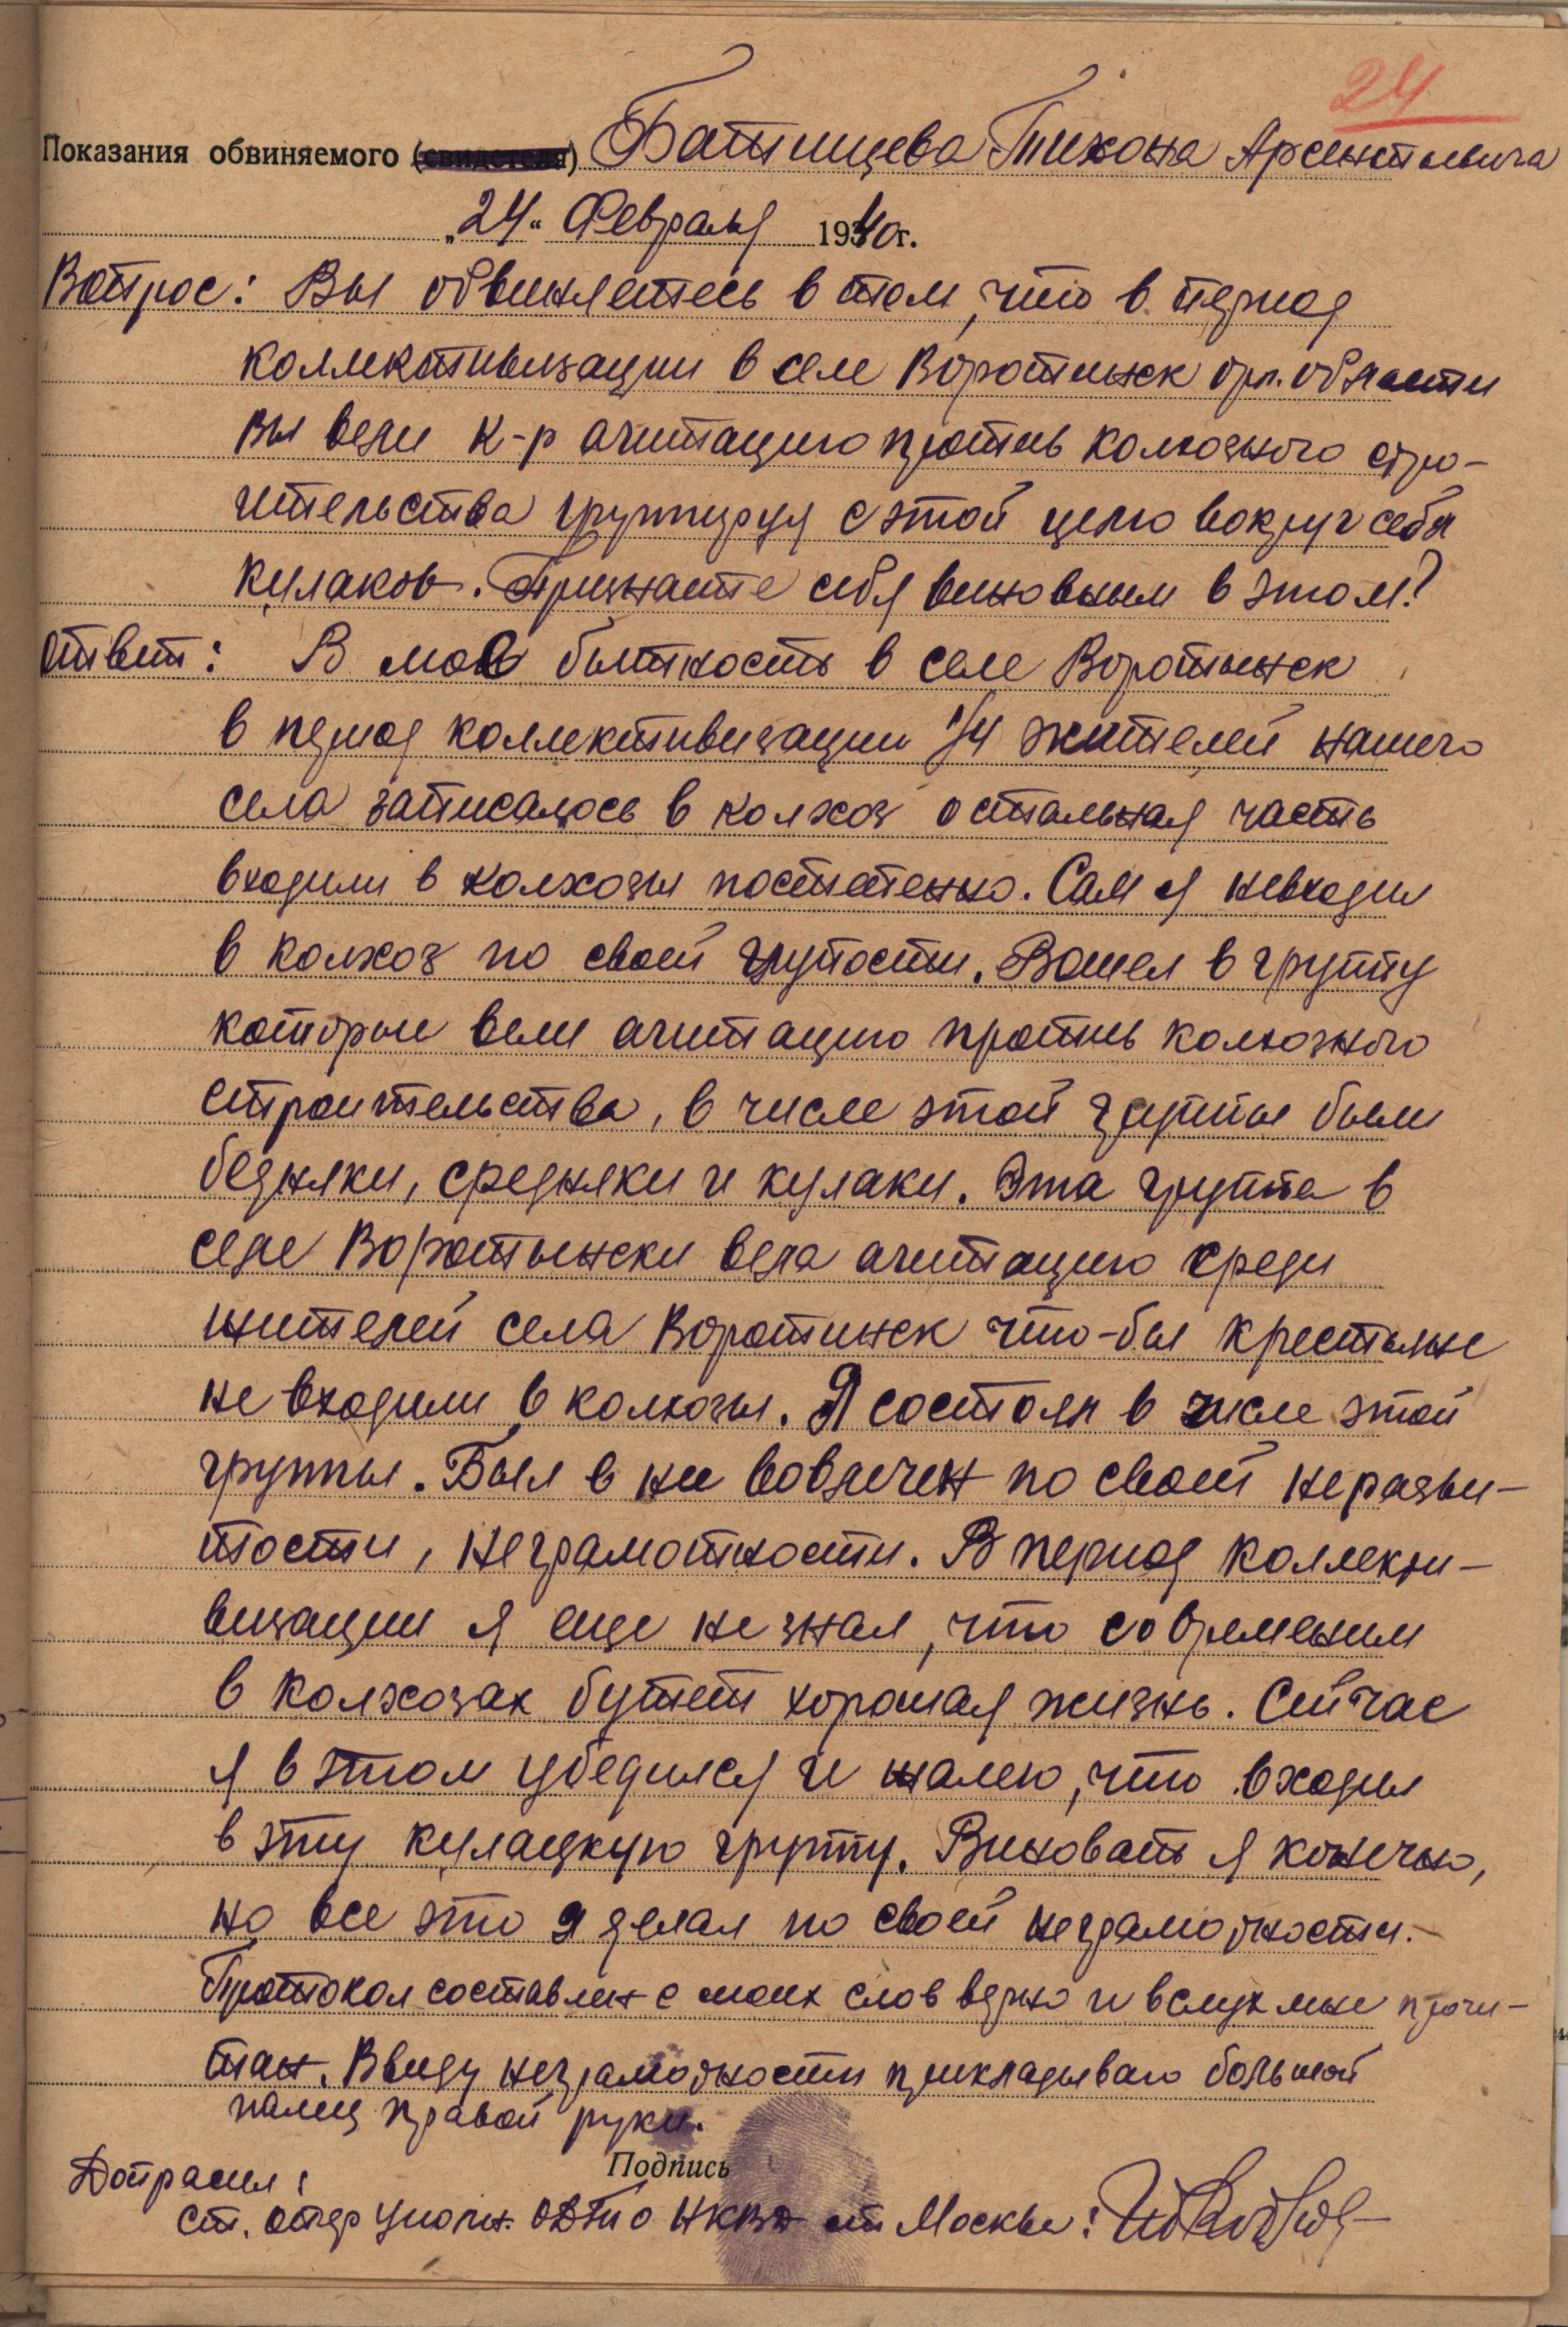 24
Показания обвиняемого (свидетеля) Батищева Тихона Арсентьевича
„24“ Февраля 1940г.
Вопрос: Вы обвиняетесь в том, что в период
коллективизации в селе Воротинск орл. области
вы вели к-р агитацию против колхозного стро-
ительства группируя с этой целю вокруг себя
кулаков. Признаете себя виновным в этом?
Ответ: В мою бытность в селе Воротынск
в период коллективизации 1/4 жителей нашего
села записалось в колхоз остальная часть
входили в колхозы постепенно. Сам я невходил
в колхоз по своей глупости. Вошел в группу
которые вели агитацию против колхозного
строительства, в числе этой группы были
бедняки, средняки и кулаки. Эта группа в
селе Воротынски вела агитацию среди
жителей села Воротинск что-бы крестьяне
не входили в колхозы. Я состоял в числе этой
группы. Был в нее вовлечен по своей неразви-
тости, неграмотности. В период коллекти-
визации я еще не знал, что современим
в колхозах будет хорошая жизнь. Сейчас
я в этом убедился и жалею, что входил
в эту кулацкую группу. Виноват я конечно,
но все это я делал по своей неграмотности.-
Протокол составлен с моих слов верно и вслух мне прочи-
тан. Ввиду неграмотности прикладываю большой
палец правой руки.
Подпись
Допрасил:
Ст. опер уполн. ОДТО НКВД ст. Москвы: